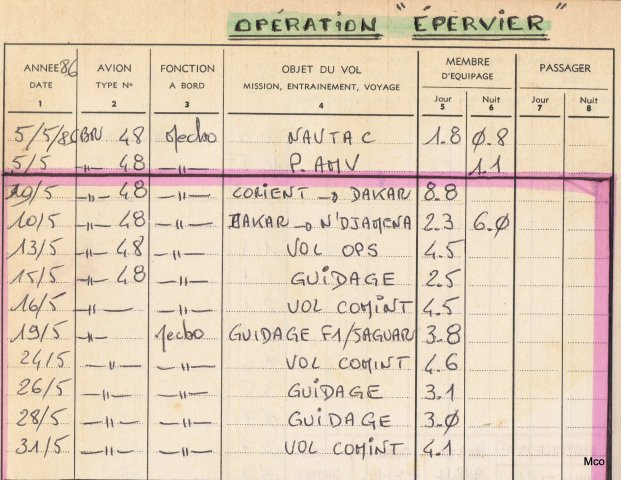 OPÉRATION "ÉPERVIER"
ANNEE 86 AVION FONCTION OBJET DU VOL MEMBRE D'EQUIPAGE PASSAGER
DATE TYPE Nº A BORD MISSION, ENTRAINEMENT, VOYAGE Jour Nuit Jour Nuit
1 2 3 4 5 6 7 8
5/5/86 48 Mecbo NAVTAC 1.8 0.8
5/5 -"- 48 -"- P. AMV 1.1
/5 -"- 48 -"- LORIENT → DAKAR 8.8
10/5 -"- 48 -"- DAKAR → N'DJAMENA 2.3 6.0
13/5 -"- 48 -"- VOL OPS 4.5
15/5 -"- 48 -"- GUIDAGE 2.5
16/5 -"- -"- VOL COMINT 4.5
19/5 -"- Mecbo GUIDAGE F1/JAGUAR 3.8
24/5 -"- -"- VOL COMINT 4.6
26/5 -"- -"- GUIDAGE 3.1
28/5 -"- -"- GUIDAGE 3.0
31/5 -"- -"- VOL COMINT 4.1
Mco